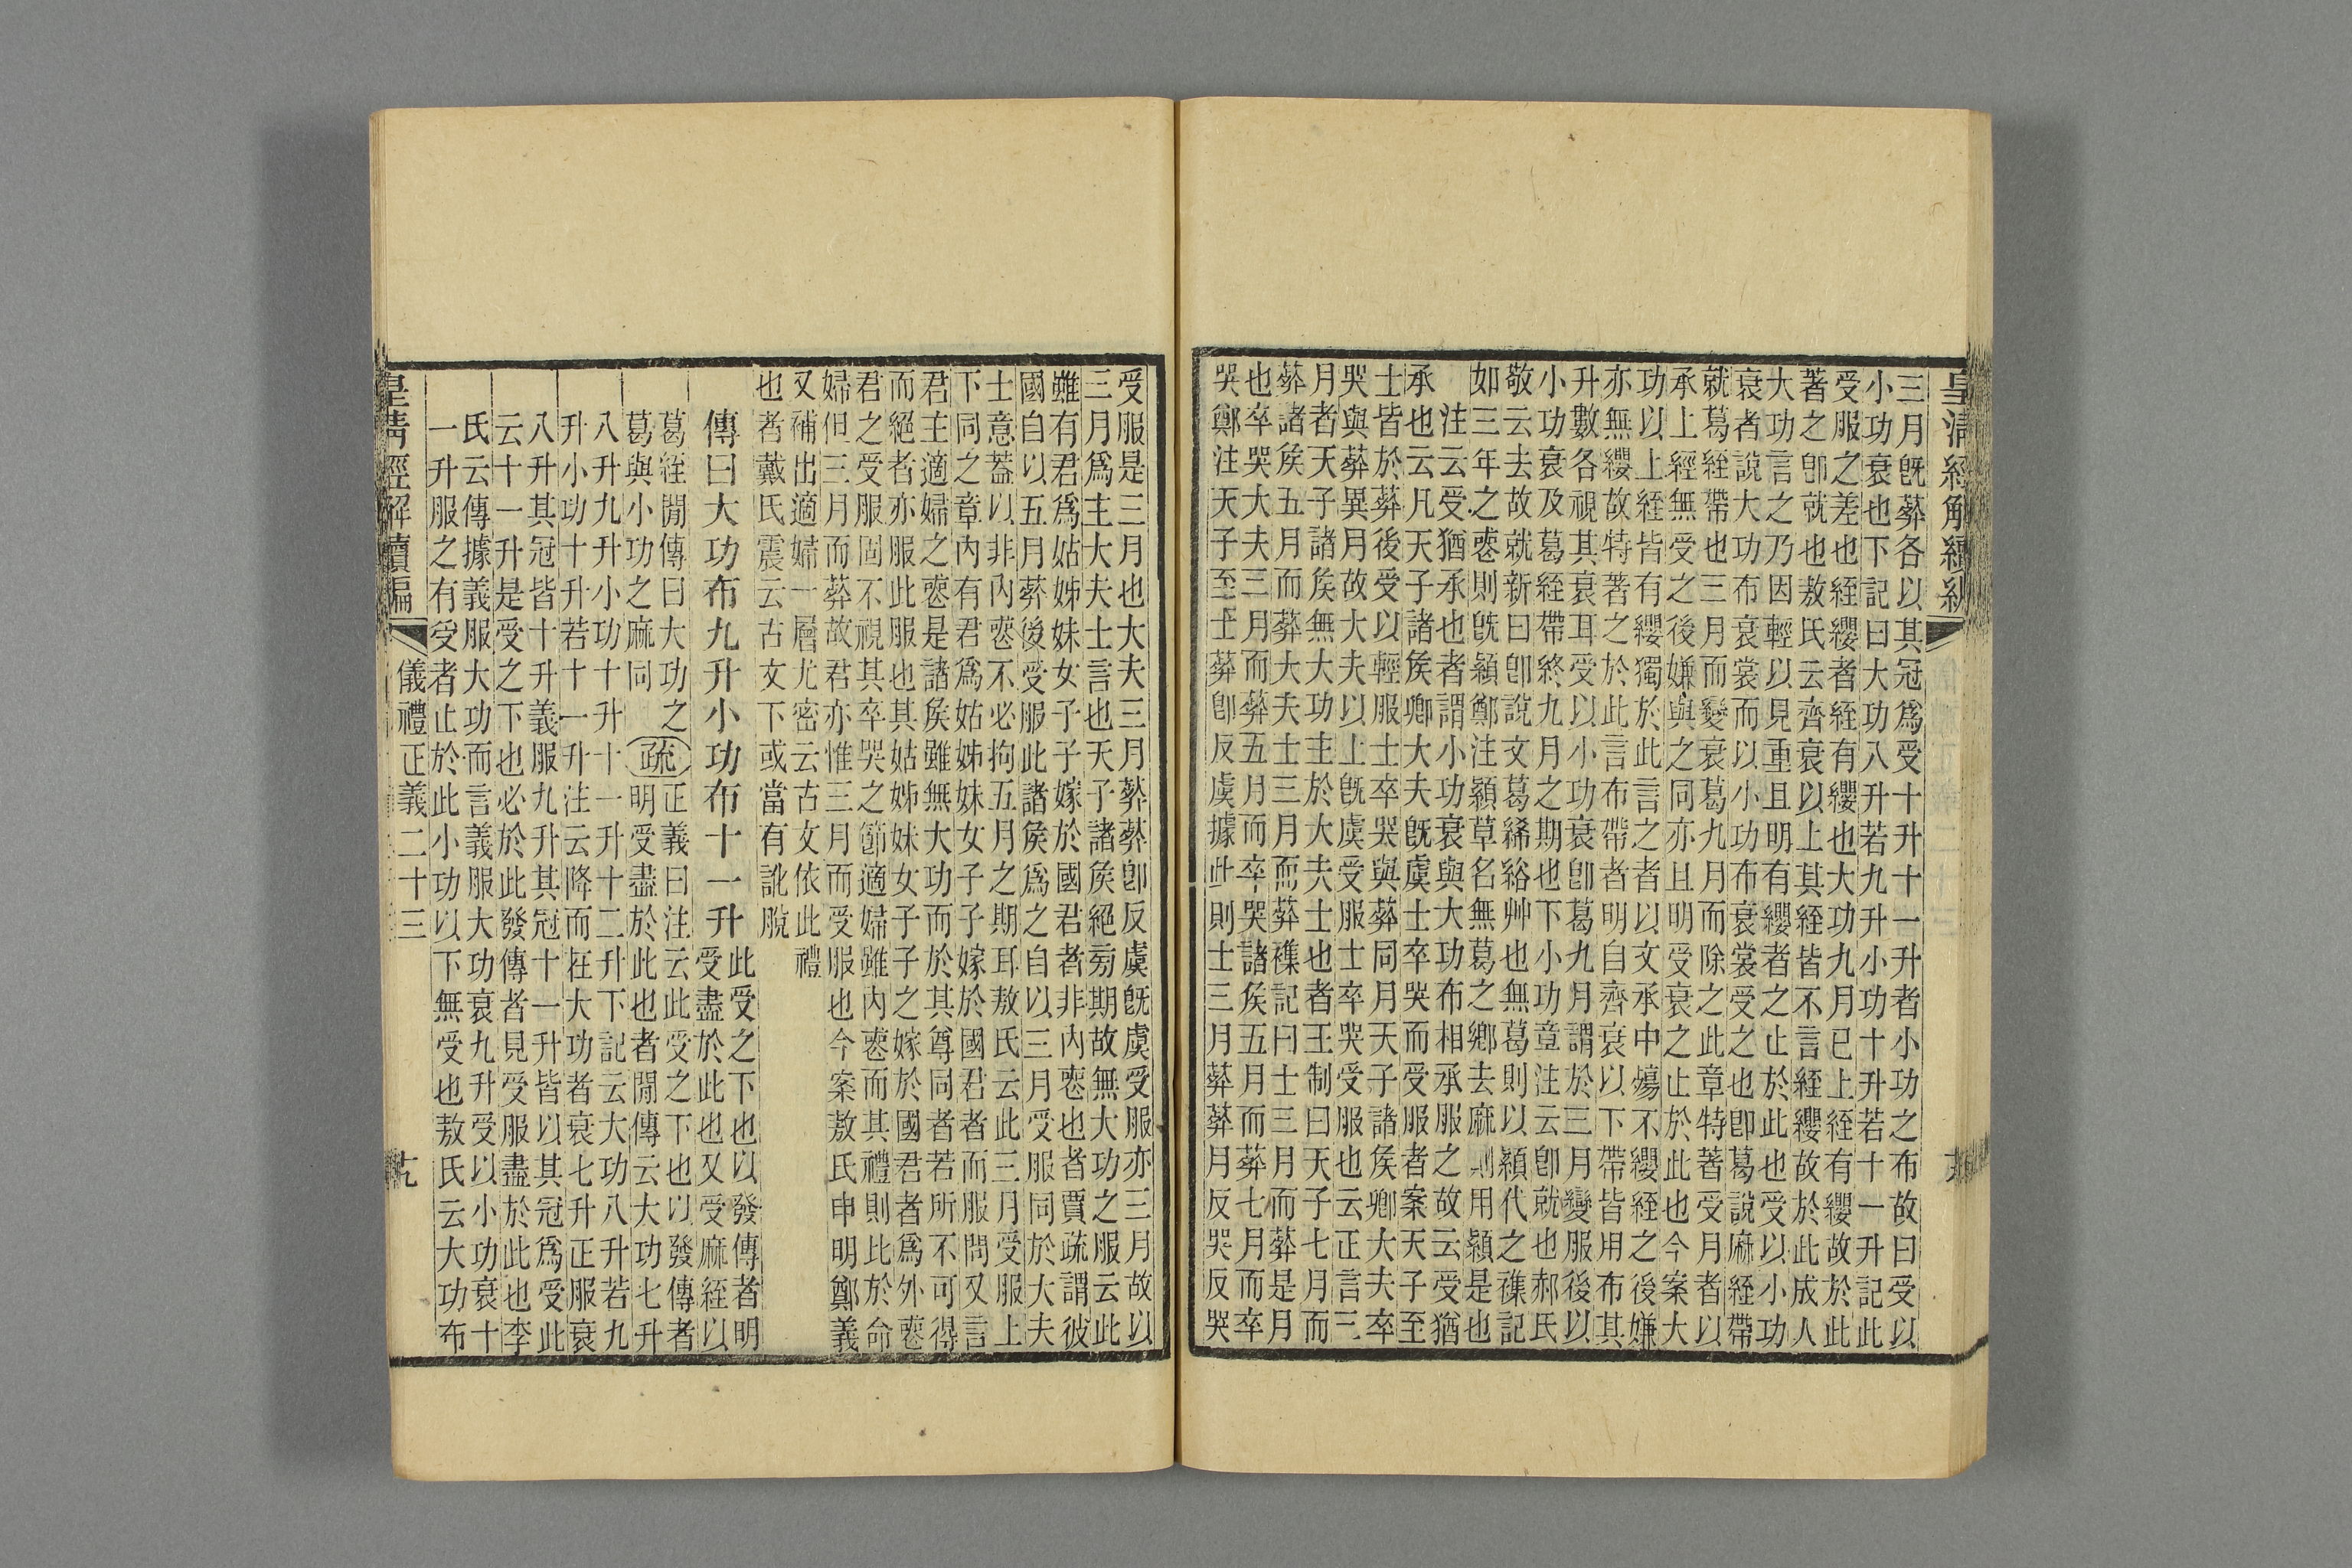 三月既葬各以其冠爲受十升十一升者小功之布故曰受以
小功衰也下記曰大功八升若九升小功十升若十一升記此
受服之差也絰纓者絰有纓也大功九月已上絰有纓故於此
著之卽就也敖氏云齊衰以上其絰皆不言絰纓故於此成人
大功言之乃因輕以見重且明有纓者之止於此也受以小功
衰者說大功布衰裳而以小功布衰裳受之也卽葛說麻絰帶
就葛絰帶也三月而變衰葛九月而除之此章特著受月者以
承上經無受之後嫌與之同亦且明受衰之止於此也今案大
功以上絰皆有纓獨於此言之者以文承中殤不纓絰之後嫌
亦無纓故特著之於此言布帶者明自齊衰以下帶皆用布其
升數各視其衰耳受以小功衰卽葛九月謂於三月變服後以
小功衰及葛絰帶終九月之期也下小功章注云卽就也郝氏
敬云去故就新曰卽說文葛絺綌艸也無葛則以穎代之襍記
如三年之喪則旣顈鄭注顈草名無葛之鄕去麻則用顈是也
注云受猶承也者謂小功衰與大功布相承服之故云受猶
承也云凡天子諸矦卿大夫旣虞士卒哭而受服者案天子至
士皆於葬後受以輕服士卒哭與葬同月天子諸矦卿大夫卒
哭與葬異月故大夫以上旣虞受服士卒哭受服也云正言三
月者天子諸矦無大功主於大夫士也者王制曰天子七月而
葬諸矦五月而葬大夫士三月而葬襍記曰士三月而葬是月
也卒哭大夫三月而葬五月而卒哭諸矦五月而葬七月而卒
哭鄭注天子至士葬卽反虞據此則士三月葬葬月反哭反哭
皇淸經解續編
受服是三月也大夫三月葬葬卽反虞旣虞受服亦三月故以
三月爲主大夫士言也天子諸矦絕旁期故無大功之服云此
雖有君爲姑姊妹女子子嫁於國君者非內喪也者賈疏謂彼
國自以五月葬後受服此諸矦爲之自以三月受服同於大夫
士意蓋以非內喪不必拘五月之期耳敖氏云此三月受服上
下同之章內有君爲姑姊妹女子子嫁於國君者而服問又言
君主適婦之喪是諸矦雖無大功而於其尊同者若所不可得
而絕者亦服此服也其姑姊妹女子子之嫁於國君者爲外喪
君之受服固不視其卒哭之節適婦雖內喪而其禮則比於命
婦但三月而葬故君亦惟三月而受服也今案敖氏申明鄭義
又補出適婦一層尤密云古文依此禮
也者戴氏震云古文下或當有訛脫
傳曰大功布九升小功布十一升此受之下也以發傳者明受盡於此也又受麻絰以
葛絰閒傳曰大功之葛與小功之麻同疏正義曰注云此受之下也以發傳者明受盡於此也者閒傳云大功七升
八升九升小功十升十一升十二升下記云大功八升若九
升小功十升若十一升注云降而在大功者衰七升正服衰
八升其冠皆十升義服九升其冠十一升皆以其冠爲受此
云十一升是受之下也必於此發傳者見受服盡於此也李
氏云傳據義服大功而言義服大功衰九升受以小功衰十
一升服之有受者止於此小功以下無受也敖氏云大功布
皇淸經解續編
儀禮正義二十三